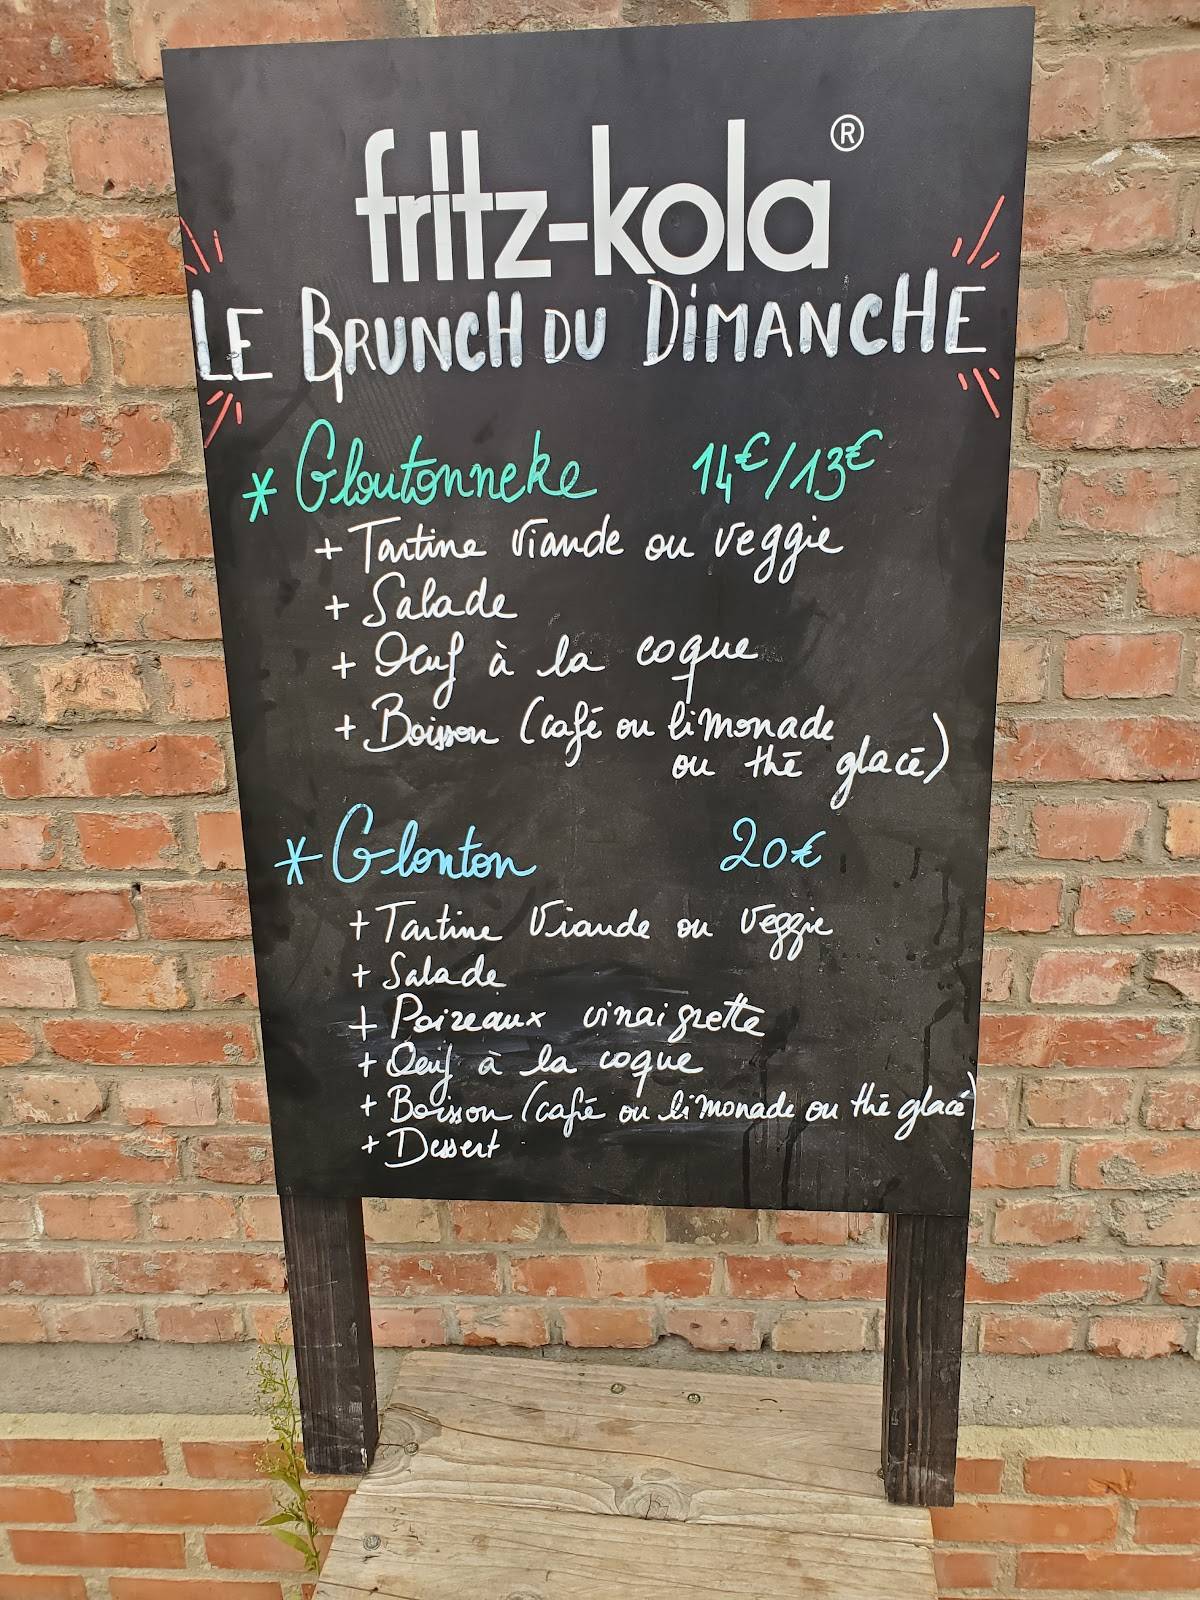 fritz-kola®
LE BRUNCH DU DIMANCHE
* Gloutonneke 14€/13€
+ Tartine Viande ou veggie
+ Salade
+ Oeuf à la coque
+ Boisson (café ou limonade
ou thé glacé)
* Glouton 20€
+ Tartine Viande ou Veggie
+ Salade
+ Poireaux vinaigrette
+ Oeuf à la coque
+ Boisson (café ou limonade ou thé glacé)
+ Dessert